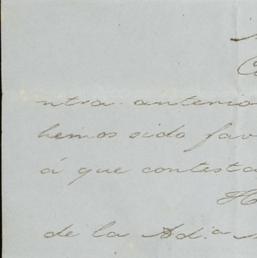 ntra. anterio
hemos sido fav
á que contesta
H
de la Ad.ª